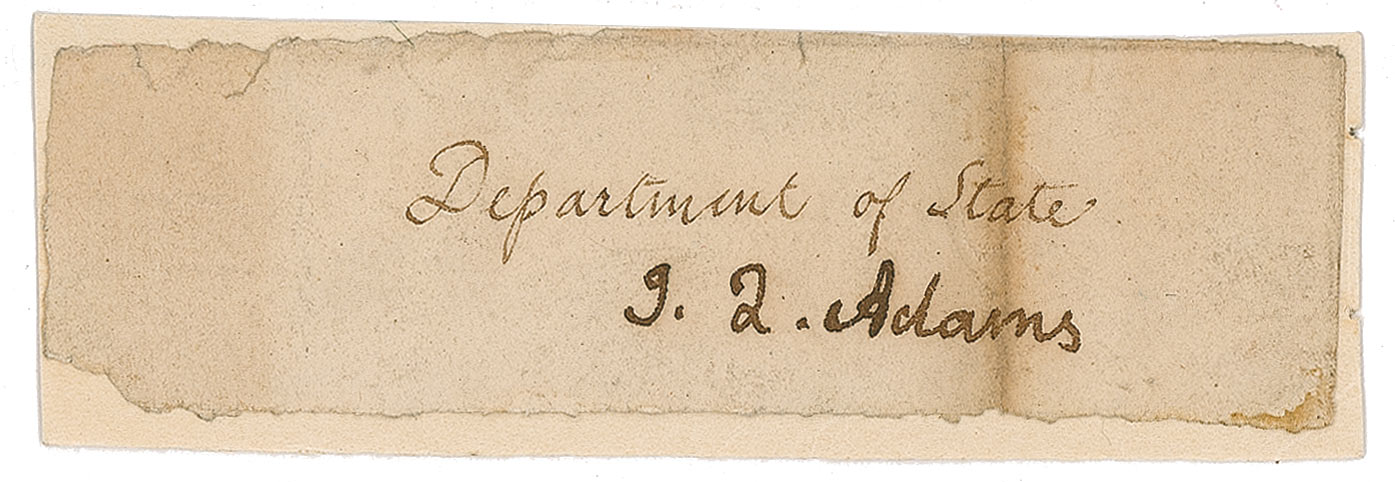 Department of State
J. Q. Adams